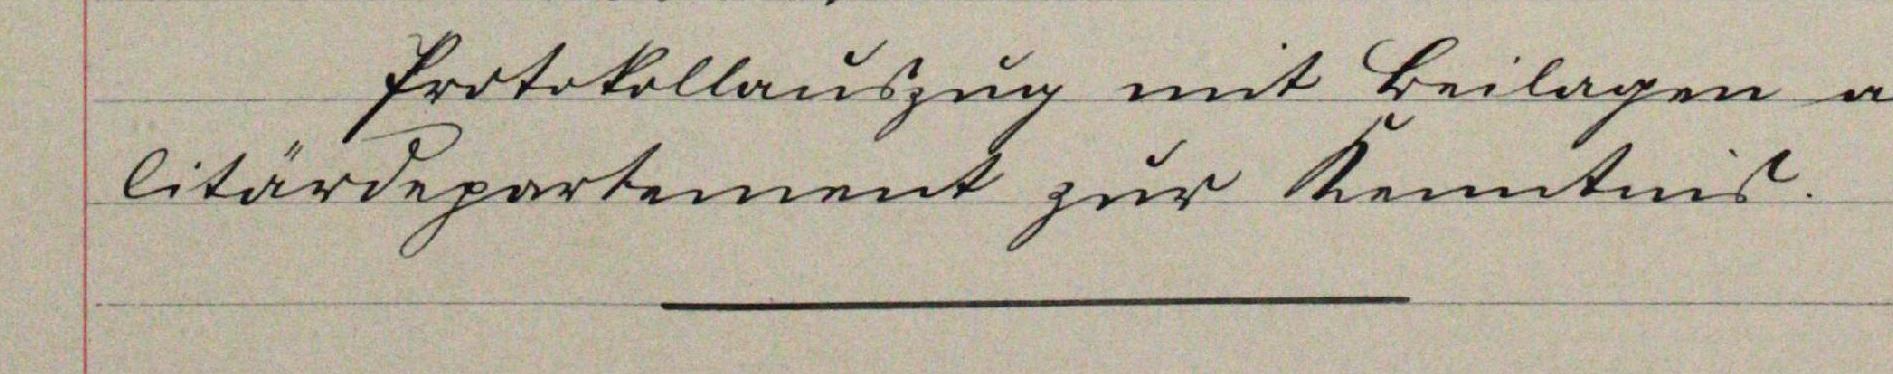 Protokollauszug mit Beilagen a
litärdepartement zur Kenntnis.